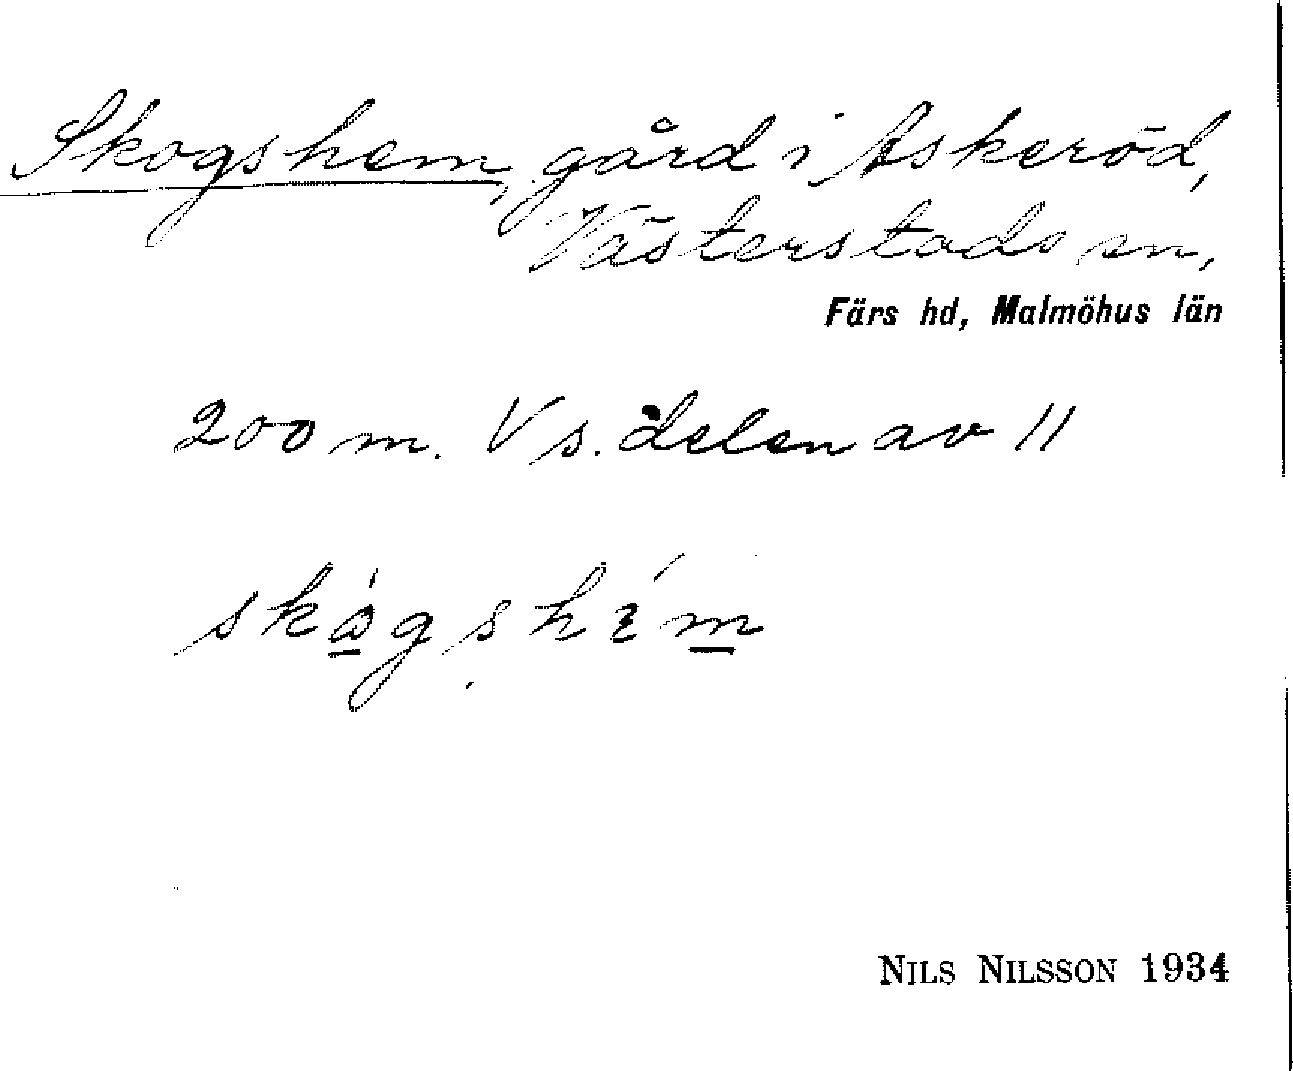 Skogshem, gård i Askeröd,
Västerstads sn,
Färs hd, Malmöhus län
200 m. V s. delen av 11
NILS NILSSON 1934